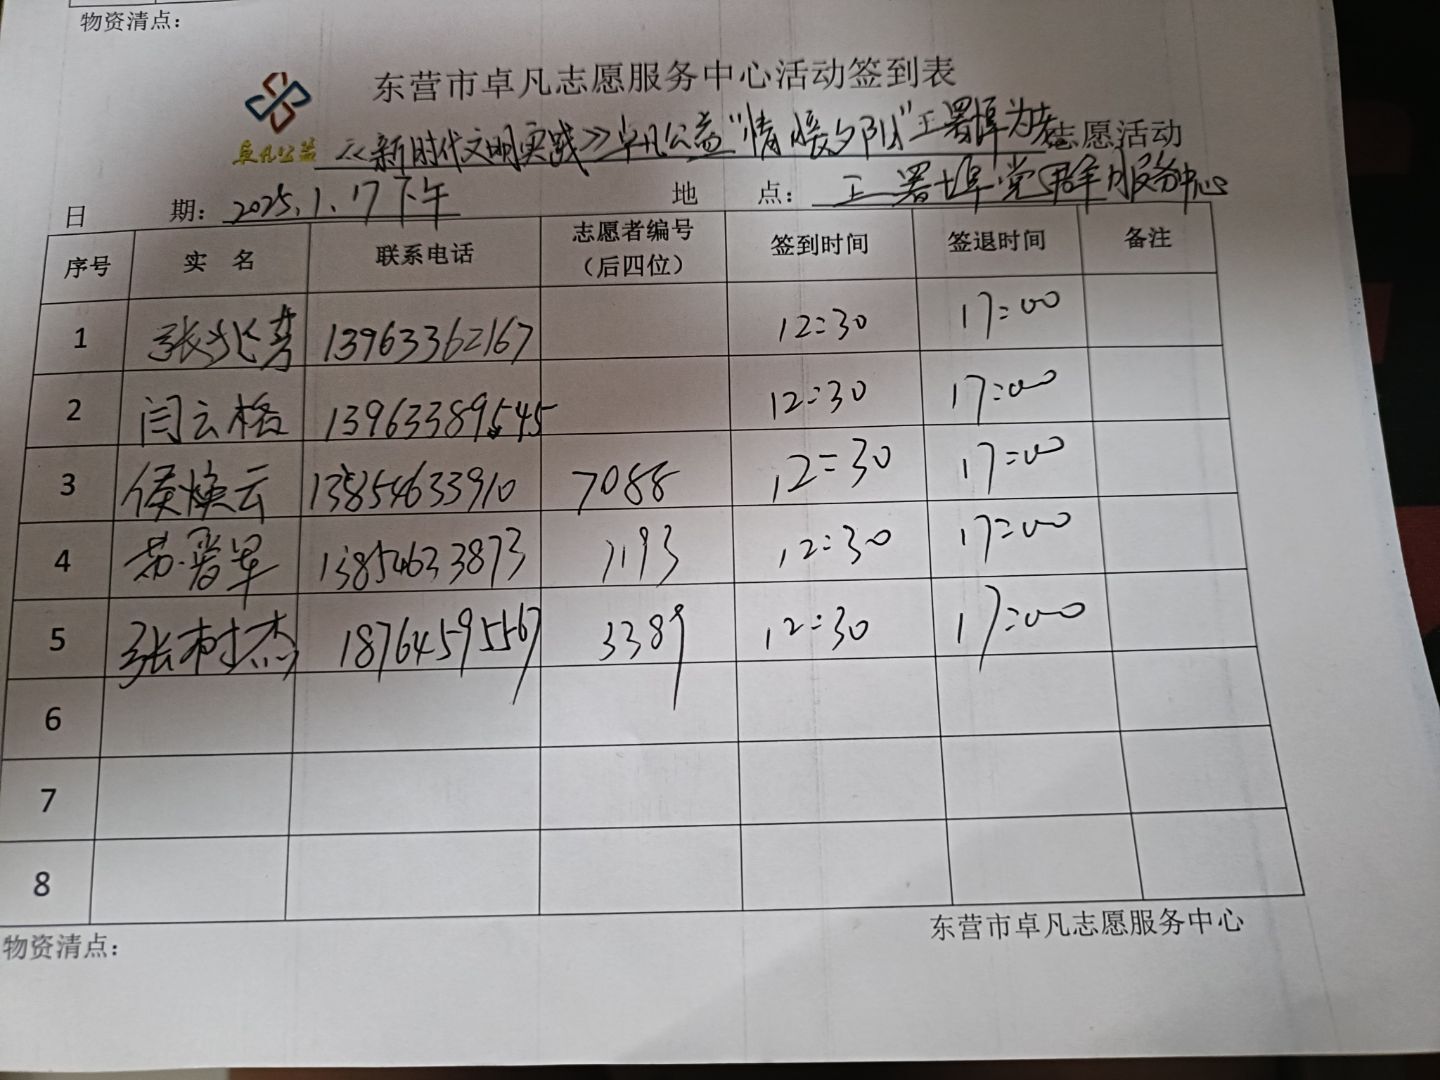 物资清点：
东营市卓凡志愿服务中心活动签到表
卓凡公益 《新时代文明实践》卓凡公益“情暖夕阳”王署埠为老志愿活动
日 期：2025.1.17下午 地 点：王署埠党群服务中心
序号 实 名 联系电话 志愿者编号（后四位） 签到时间 签退时间 备注
1 张兆芳 13963362167 12:30 17:00
2 闫云格 13963389545 12:30 17:00
3 侯焕云 13854633910 7088 12:30 17:00
4 苏晋军 13854633873 1193 12:30 17:00
5 张树杰 18764595567 3389 12:30 17:00
6
7
8
物资清点： 东营市卓凡志愿服务中心